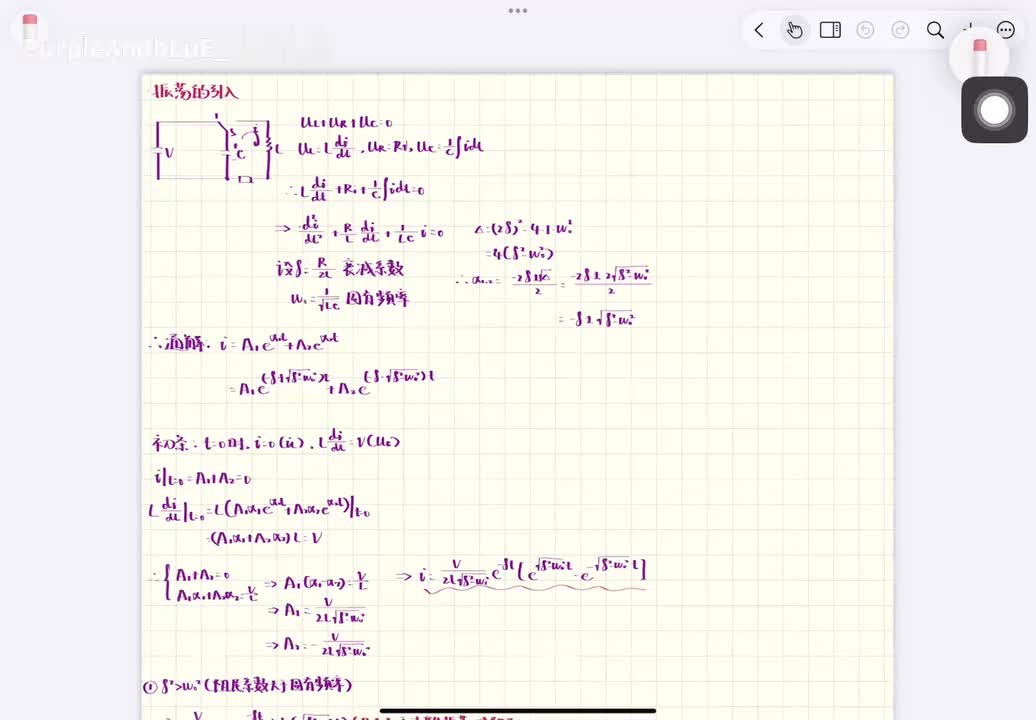 PurpleAndbLuE_
振荡的引入
V
S
C
i
L
U_L+U_R+U_C=0
U_L=L di/dt, U_R=Ri, U_C=1/C∫idt
∴L di/dt+Ri+1/C∫idt=0
⇒ d²i/dt²+R/L di/dt+1/LC i=0
Δ=(2δ)²-4·1·ω₀²
=4(δ²-ω₀²)
设δ=R/2L 衰减系数
∴α₁,₂=(-2δ±√Δ)/2=(-2δ±2√(δ²-ω₀²))/2
ω₀=1/√LC 固有频率
=-δ±√(δ²-ω₀²)
∴通解. i=A₁e^(α₁t)+A₂e^(α₂t)
=A₁e^((-δ+√(δ²-ω₀²))t)+A₂e^((-δ-√(δ²-ω₀²))t)
初条. t=0时. i=0(i_L), L di/dt=V(U_C)
i|t=0=A₁+A₂=0
L di/dt|t=0=L(A₁α₁e^(α₁t)+A₂α₂e^(α₂t))|t=0
=(A₁α₁+A₂α₂)L=V
∴{A₁+A₂=0
A₁α₁+A₂α₂=V/L
⇒A₁(α₁-α₂)=V/L
⇒i=V/(2L√(δ²-ω₀²)) e^(-δt)[e^(√(δ²-ω₀²)t)-e^(-√(δ²-ω₀²)t)]
⇒A₁=V/(2L√(δ²-ω₀²))
⇒A₂=-V/(2L√(δ²-ω₀²))
① δ²>ω₀²(阻尼系数大于固有频率)